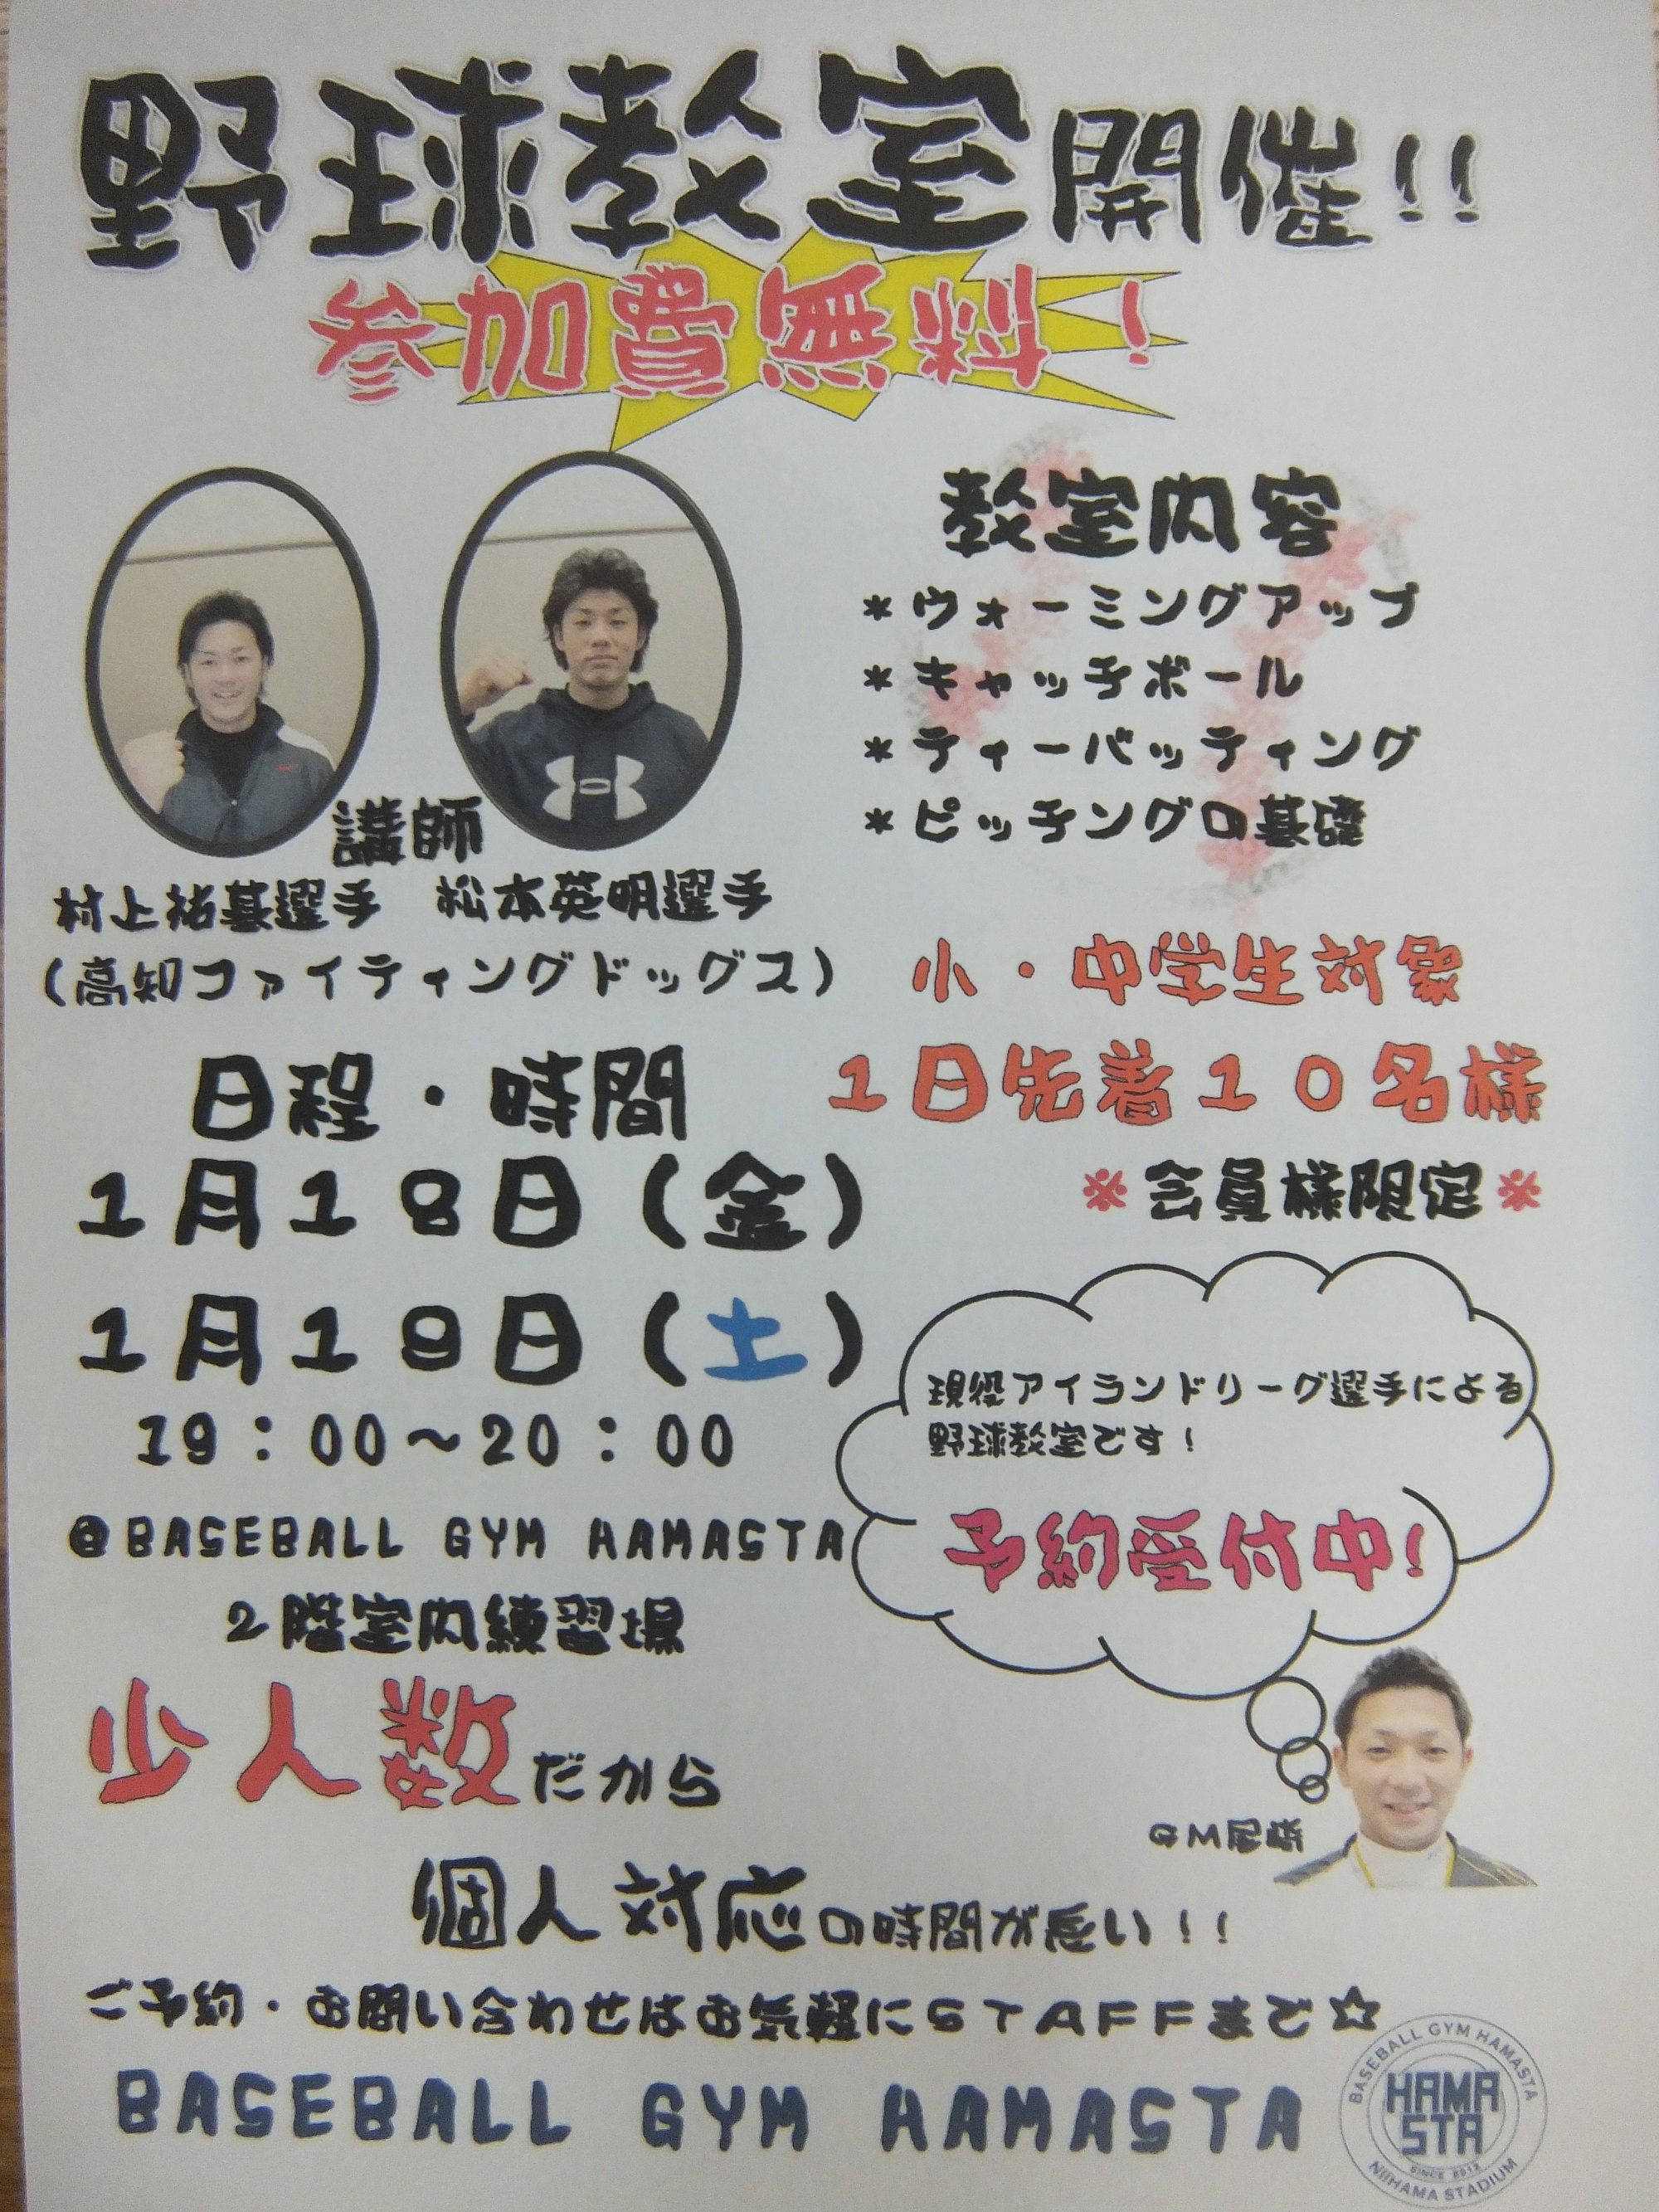 野球教室開催!!
参加費無料!
教室内容
*ウォーミングアップ
*キャッチボール
*ティーバッティング
*ピッチングの基礎
講師
村上祐基選手 松本英明選手
(高知ファイティングドッグス)
小・中学生対象
1日先着10名様
※会員様限定※
日程・時間
1月18日(金)
1月19日(土)
19:00〜20:00
@BASEBALL GYM HAMASTA
2階室内練習場
現役アイランドリーグ選手による
野球教室です!
予約受付中!
GM尾崎
少人数だから
個人対応の時間が長い!!
ご予約・お問い合わせはお気軽にSTAFFまで☆
BASEBALL GYM HAMASTA
BASEBALL GYM HAMASTA
HAMA
STA
SINCE 2012
NIIHAMA STADIUM